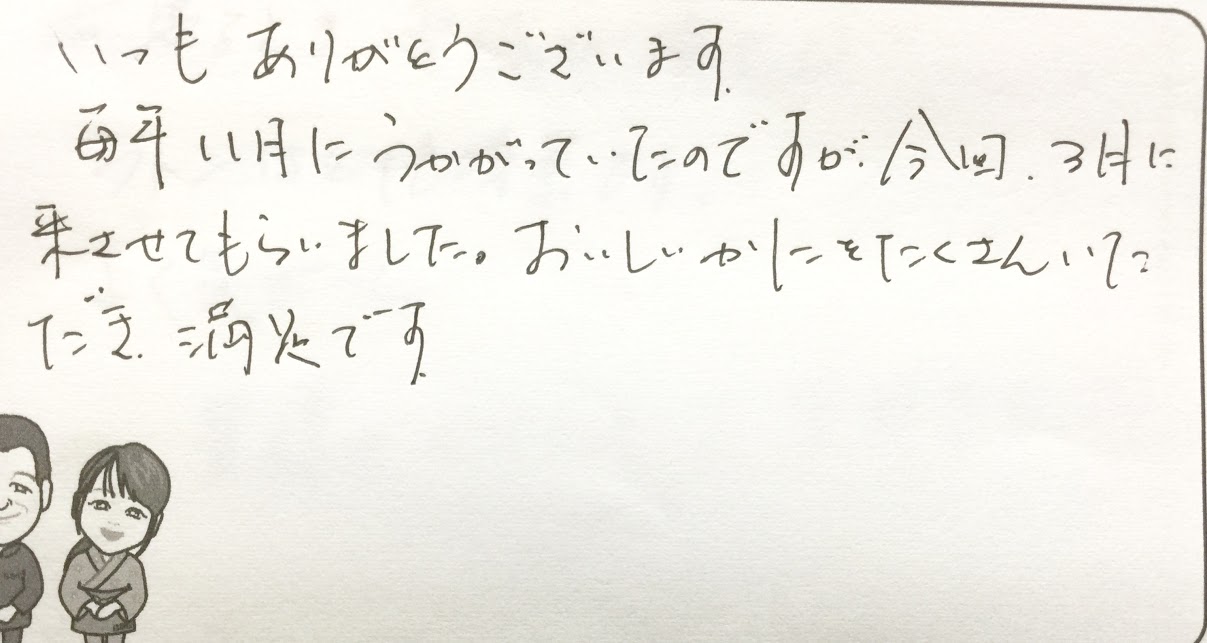 いつもありがとうございます.
毎年11月にうかがっていたのですが.今回.3月に
来させてもらいました。おいしいかにをたくさんいた
だき.満足です.